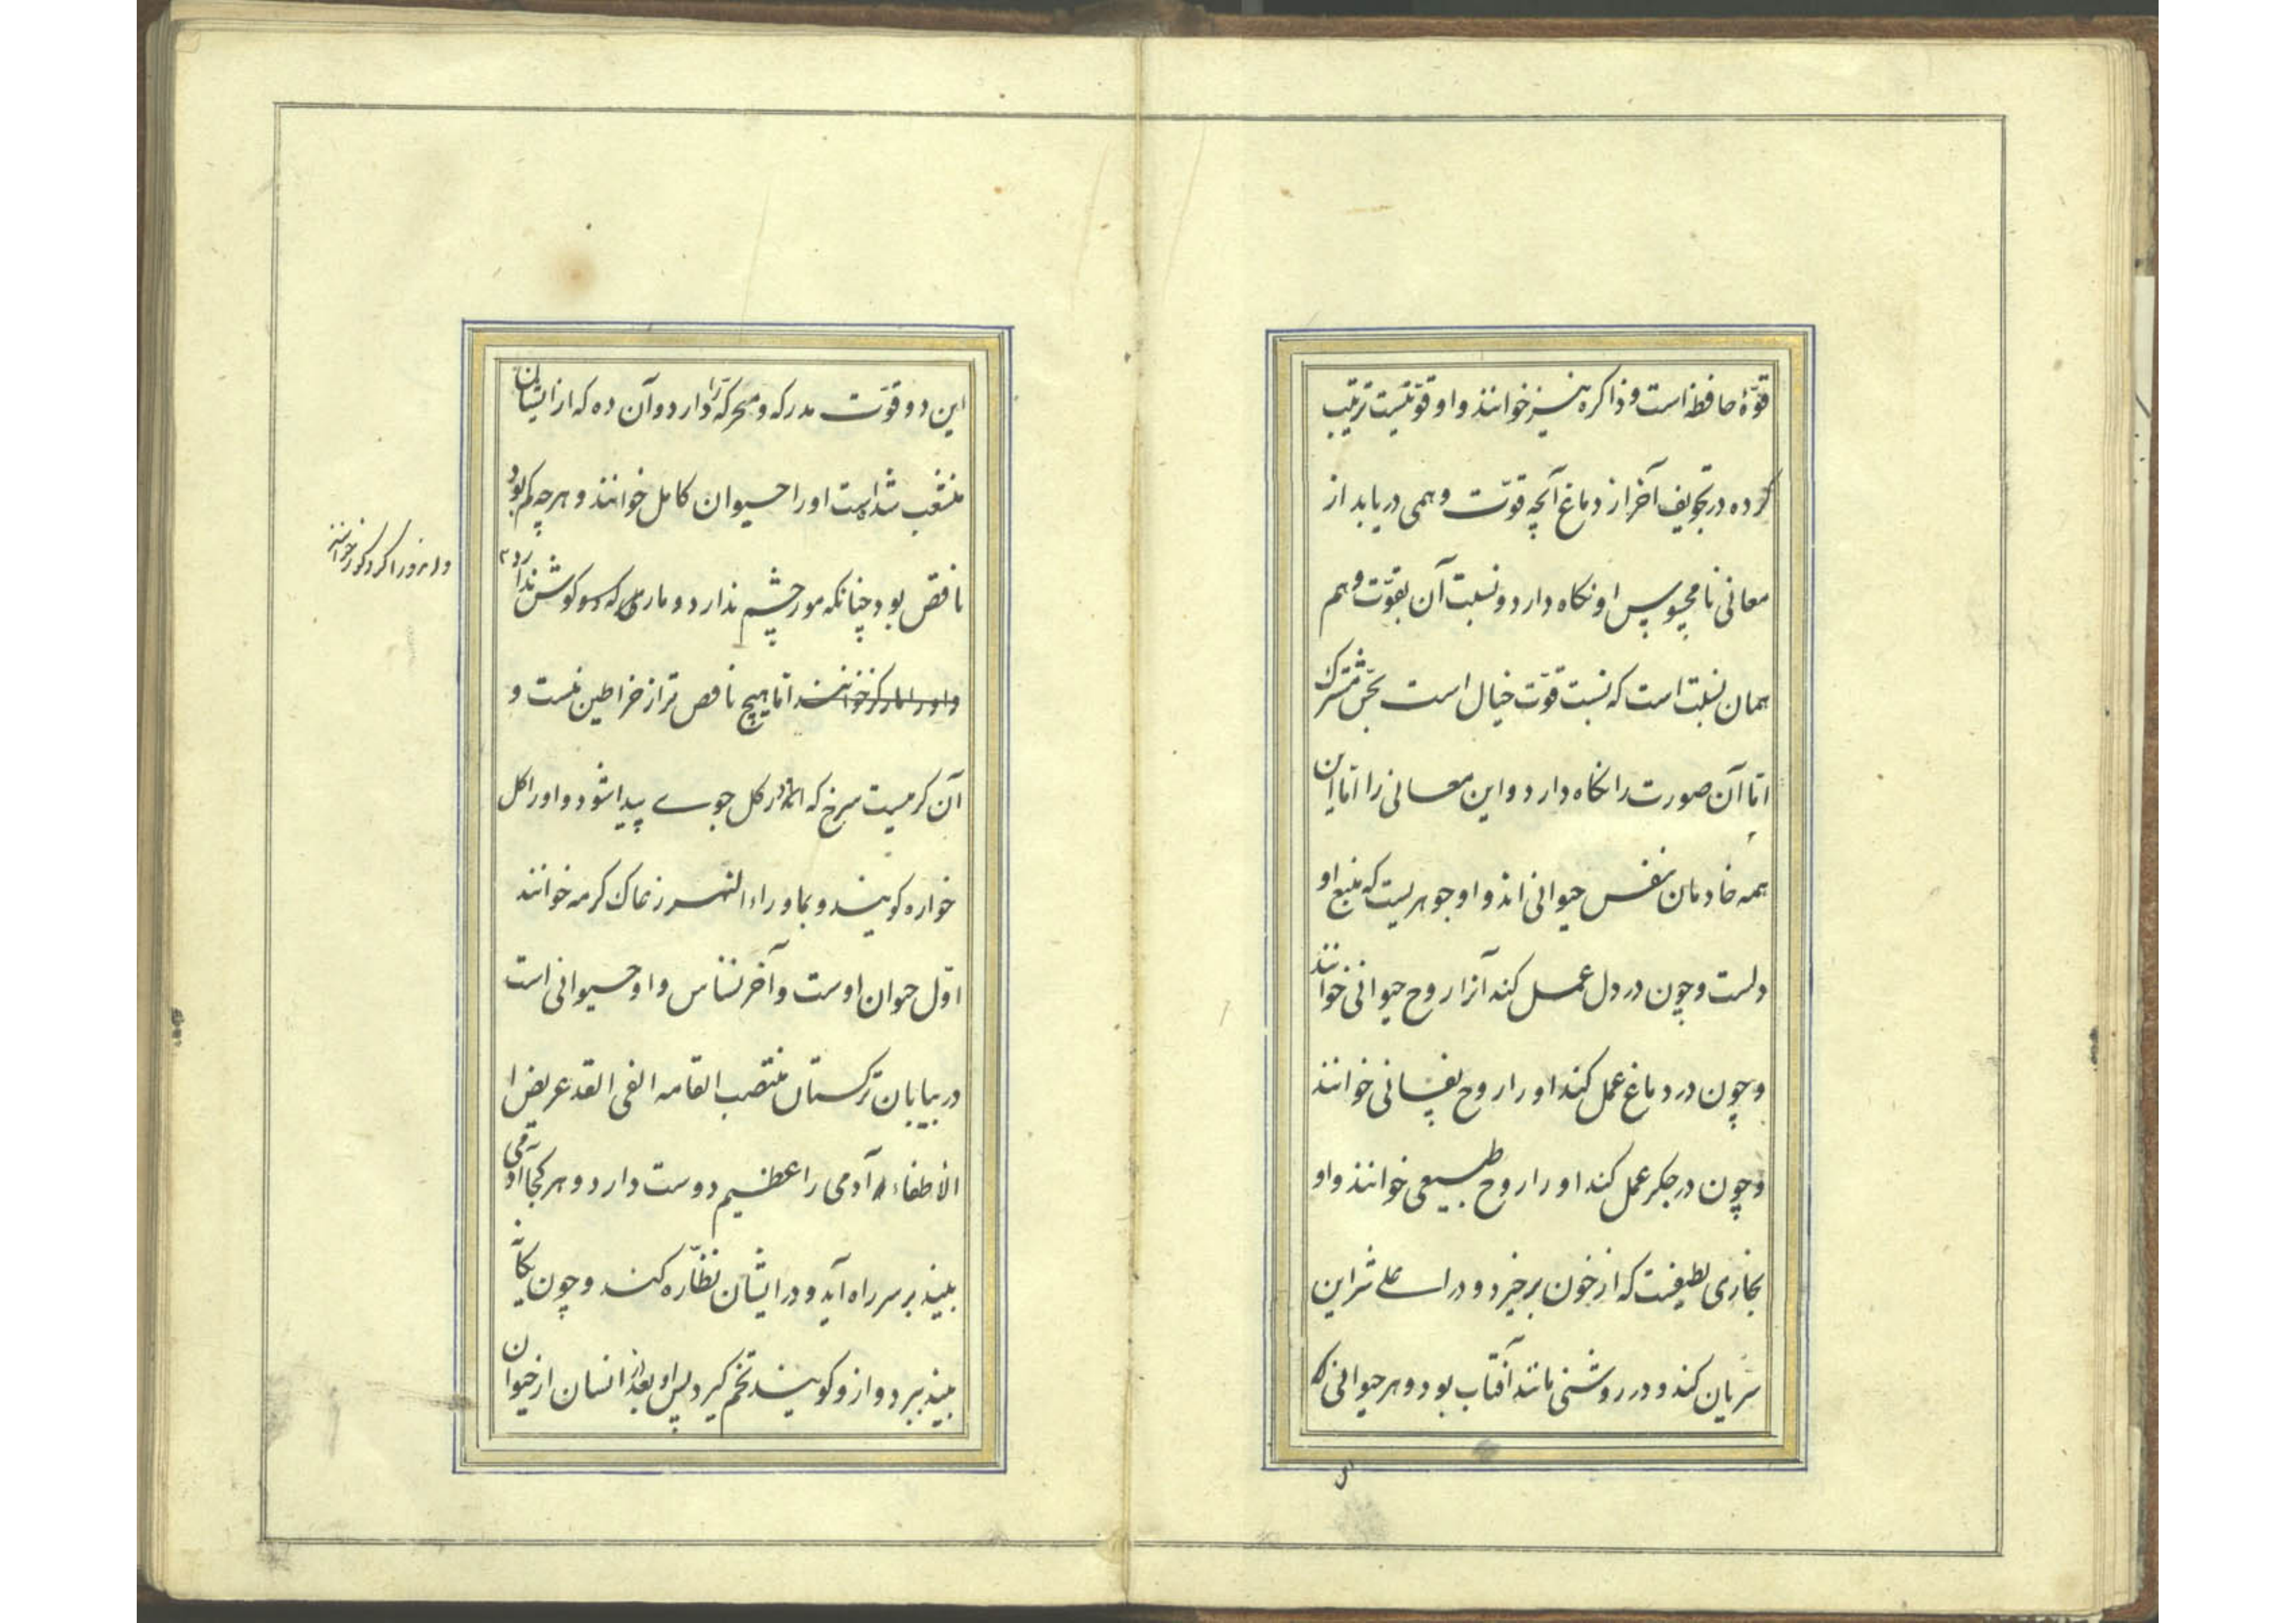 قوّهٔ حافظه است و ذاکره نیز خوانند و او قوّتیست ترتیب
کرده در تجویف آخر از دماغ آنچه قوّت وهمی دریابد از
معانی نامحسوس او نکاه دارد و نسبت آن بقوّت وهم
همان نسبت است که نسبت قوّت خیال است بحسّ مشترک
امّا آن صورت را نکاه دارد و این معانی را امّا این
همه خادمان نفس حیوانی اند و او جوهریست که منبع او
دلست و چون در دل عمل کند آنرا روح حیوانی خوانند
و چون در دماغ عمل کند او را روح نفسانی خوانند
و چون در جکر عمل کند او را روح طبیعی خوانند و او
بخاری لطیفست که از خون برخیزد و در اعلی شراین
سریان کند و در روشنی مانند آفتاب بود و هر حیوانی که
این دو قوّت مدرکه و محرکه را دارد و آن ده که از ایشان
منشعب شده است او را حیوان کامل خوانند و هر چه کم بود
ناقص بود چنانکه مور چشم ندارد و ماری که کوش ندارد
و او را مار کر خوانند امّا هیچ ناقص تر از خراطین نیست و
آن کرمیست سرخ که اندر کل جوی پیدا شود و او را کل
خواره کویند و بماوراء النهر زغاک کرمه خوانند
اوّل حیوان اوست و آخر نسناس و او حیوانی است
در بیابان ترکستان منتصب القامه الفی القد عریض ا
لاظفار آدمی را عظیم دوست دارد و هر کجا آدمی
بیند بر سر راه آید و در ایشان نظّاره کند و چون یکانه
بیند ببرد و ازو کویند تخم کیرد پس او بعد از انسان از حیوان